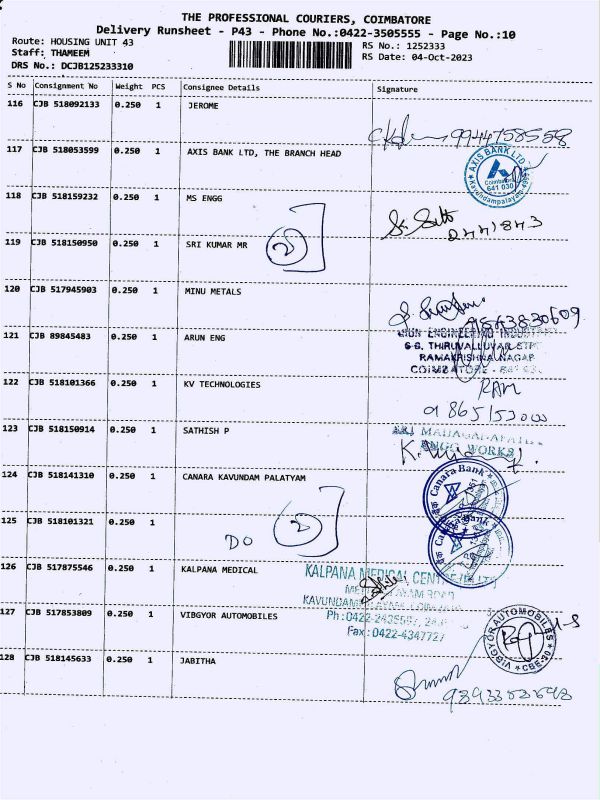 THE PROFESSIONAL COURIERS, COIMBATORE
Delivery Runsheet - P43 - Phone No.:0422-3505555 - Page No.:10
Route: HOUSING UNIT 43 RS No.: 1252333
Staff: THAMEEM RS Date: 04-Oct-2023
DRS No.: DCJB125233310
S No Consignment No Weight PCS Consignee Details Signature
116 CJB 518092133 0.250 1 JEROME
9944758558
117 CJB 518053599 0.250 1 AXIS BANK LTD, THE BRANCH HEAD
AXIS BANK LTD
Coimbatore
641 030
118 CJB 518159232 0.250 1 MS ENGG
2441843
119 CJB 518150950 0.250 1 SRI KUMAR MR
2
120 CJB 517945903 0.250 1 MINU METALS
9843830609
121 CJB 89845483 0.250 1 ARUN ENG
ENGINEERING
S-B. THIRUVALLUVAR
RAMAKRISHNA NAGAR
COIMBATORE
122 CJB 518101366 0.250 1 KV TECHNOLOGIES
RAM
123 CJB 518150914 0.250 1 SATHISH P
WORKS
124 CJB 518141310 0.250 1 CANARA KAVUNDAM PALATYAM
Canara Bank
125 CJB 518101321 0.250 1
DO 2
Canara Bank
126 CJB 517875546 0.250 1 KALPANA MEDICAL
KALPANA MEDICAL
Fax:0422-4347727
127 CJB 517853809 0.250 1 VIBGYOR AUTOMOBILES
VIBGYOR AUTOMOBILES
CBE-30
128 CJB 518145633 0.250 1 JABITHA